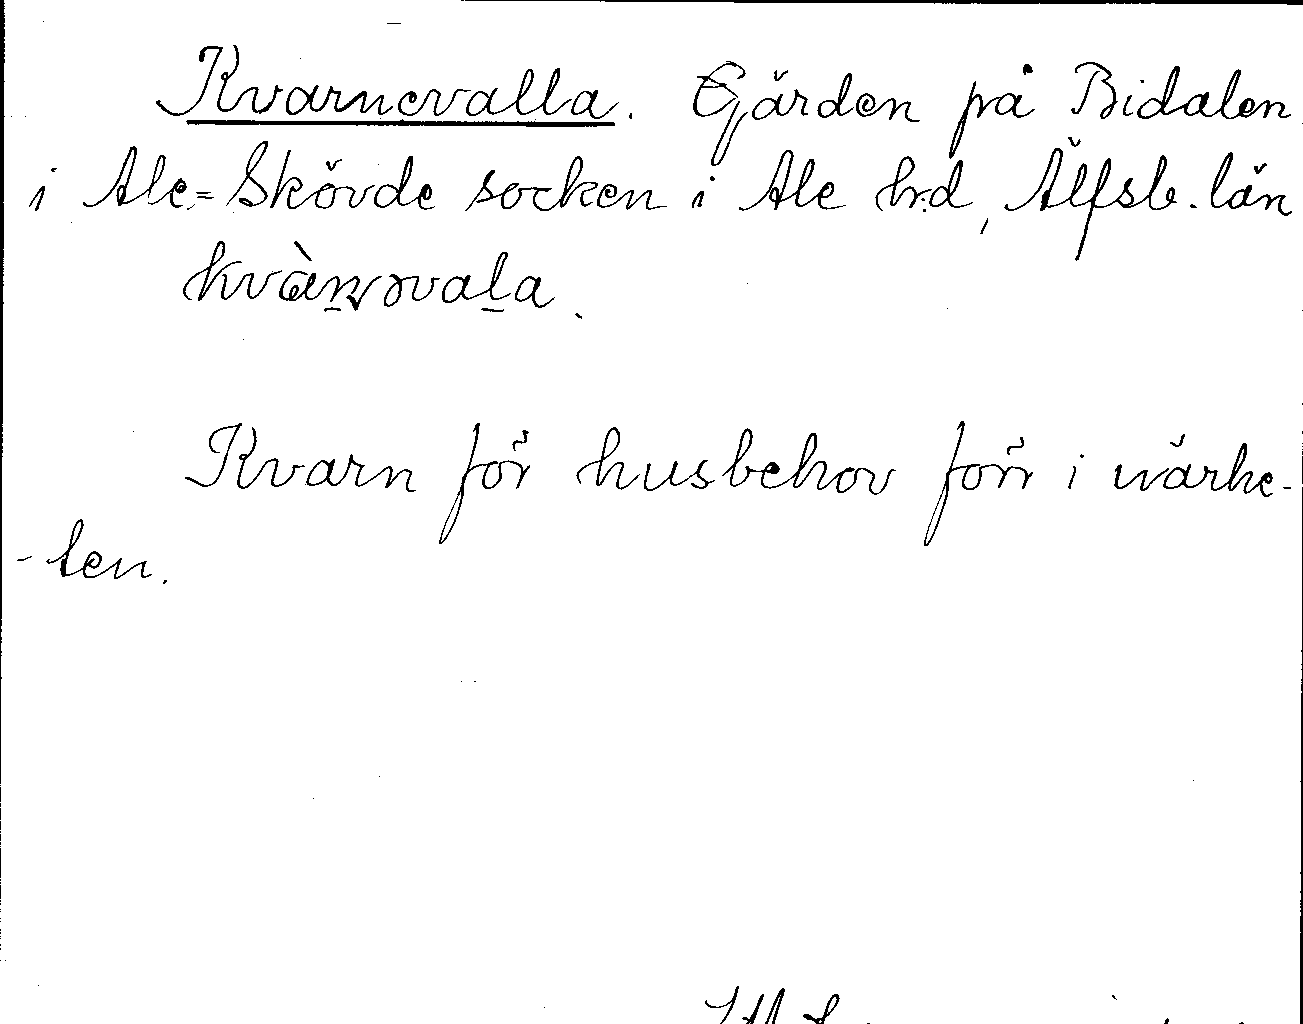 Kvarnevalla. Gärden på Bidalen
i Ale=Skövde socken i Ale hd, Älfsb. län
kvàṉɷvaḻa.
Kvarn för husbehov förr i närhe-
-ten.